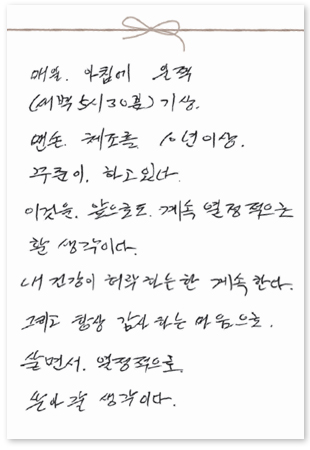 매일. 아침에 운적
(새벽 5시30분) 기상.
맨손. 체조를 10년이상.
꾸준이. 하고 있다.
이것을. 앞으로도. 계속 열정적으로
할 생각이다.
내 건강이 허락하는한 계속 한다.
그리고 항상 감사하는 마음으로.
살면서. 열정적으로.
살아갈 생각이다.